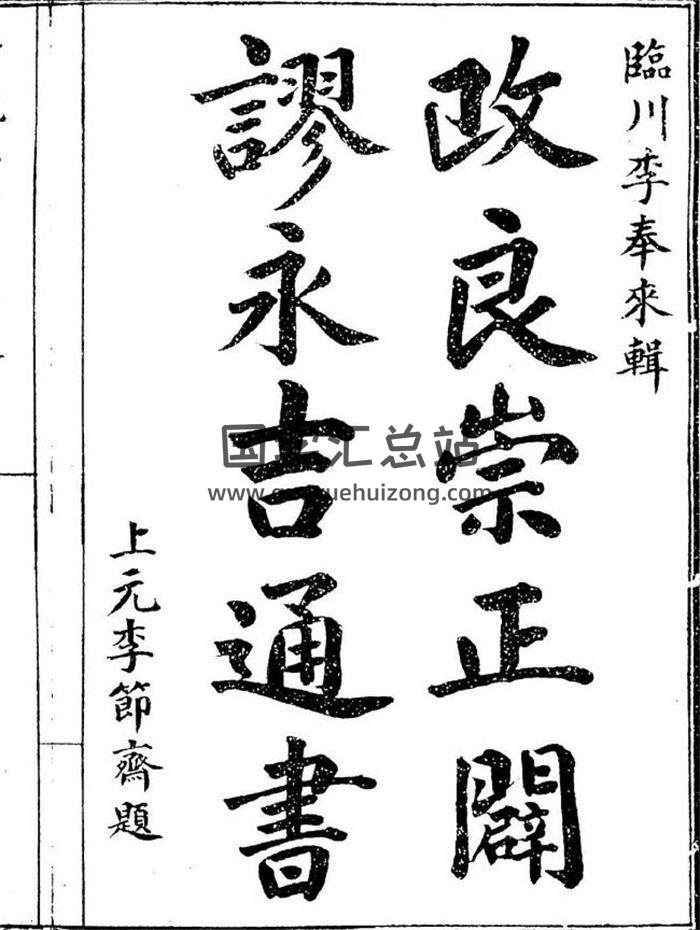 臨川李奉來輯
改良崇正闢
謬永吉通書
上元李節齋題
国学汇总站
www.guoxuehuizong.com